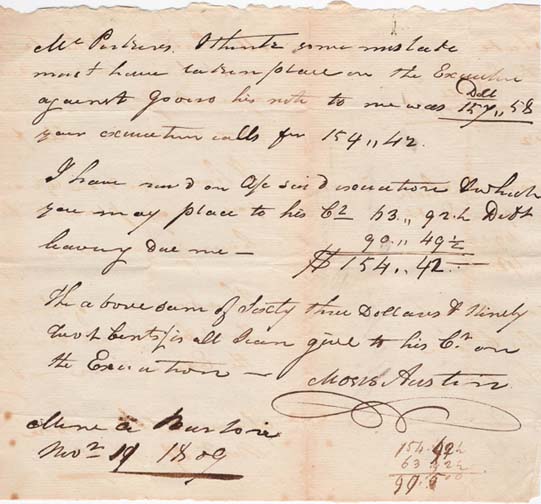 Mr Perkens. I think some mistake
must have taken place on the Execution
against Govero his note to me was Doll 157,,58
your execution calls for 154,,42.
I have recd on A/c said execution & which
you may place to his Cr 63,,92½ Debt
90,,49½
leaving due me — $154,,42
The above sum of Sixty three Dollars & Ninety
two ½ Cents is all I can give to his Cr on
the Execution — Moses Austin
Mine a Burton
Novr 19 1809
154
63 92½
90.5